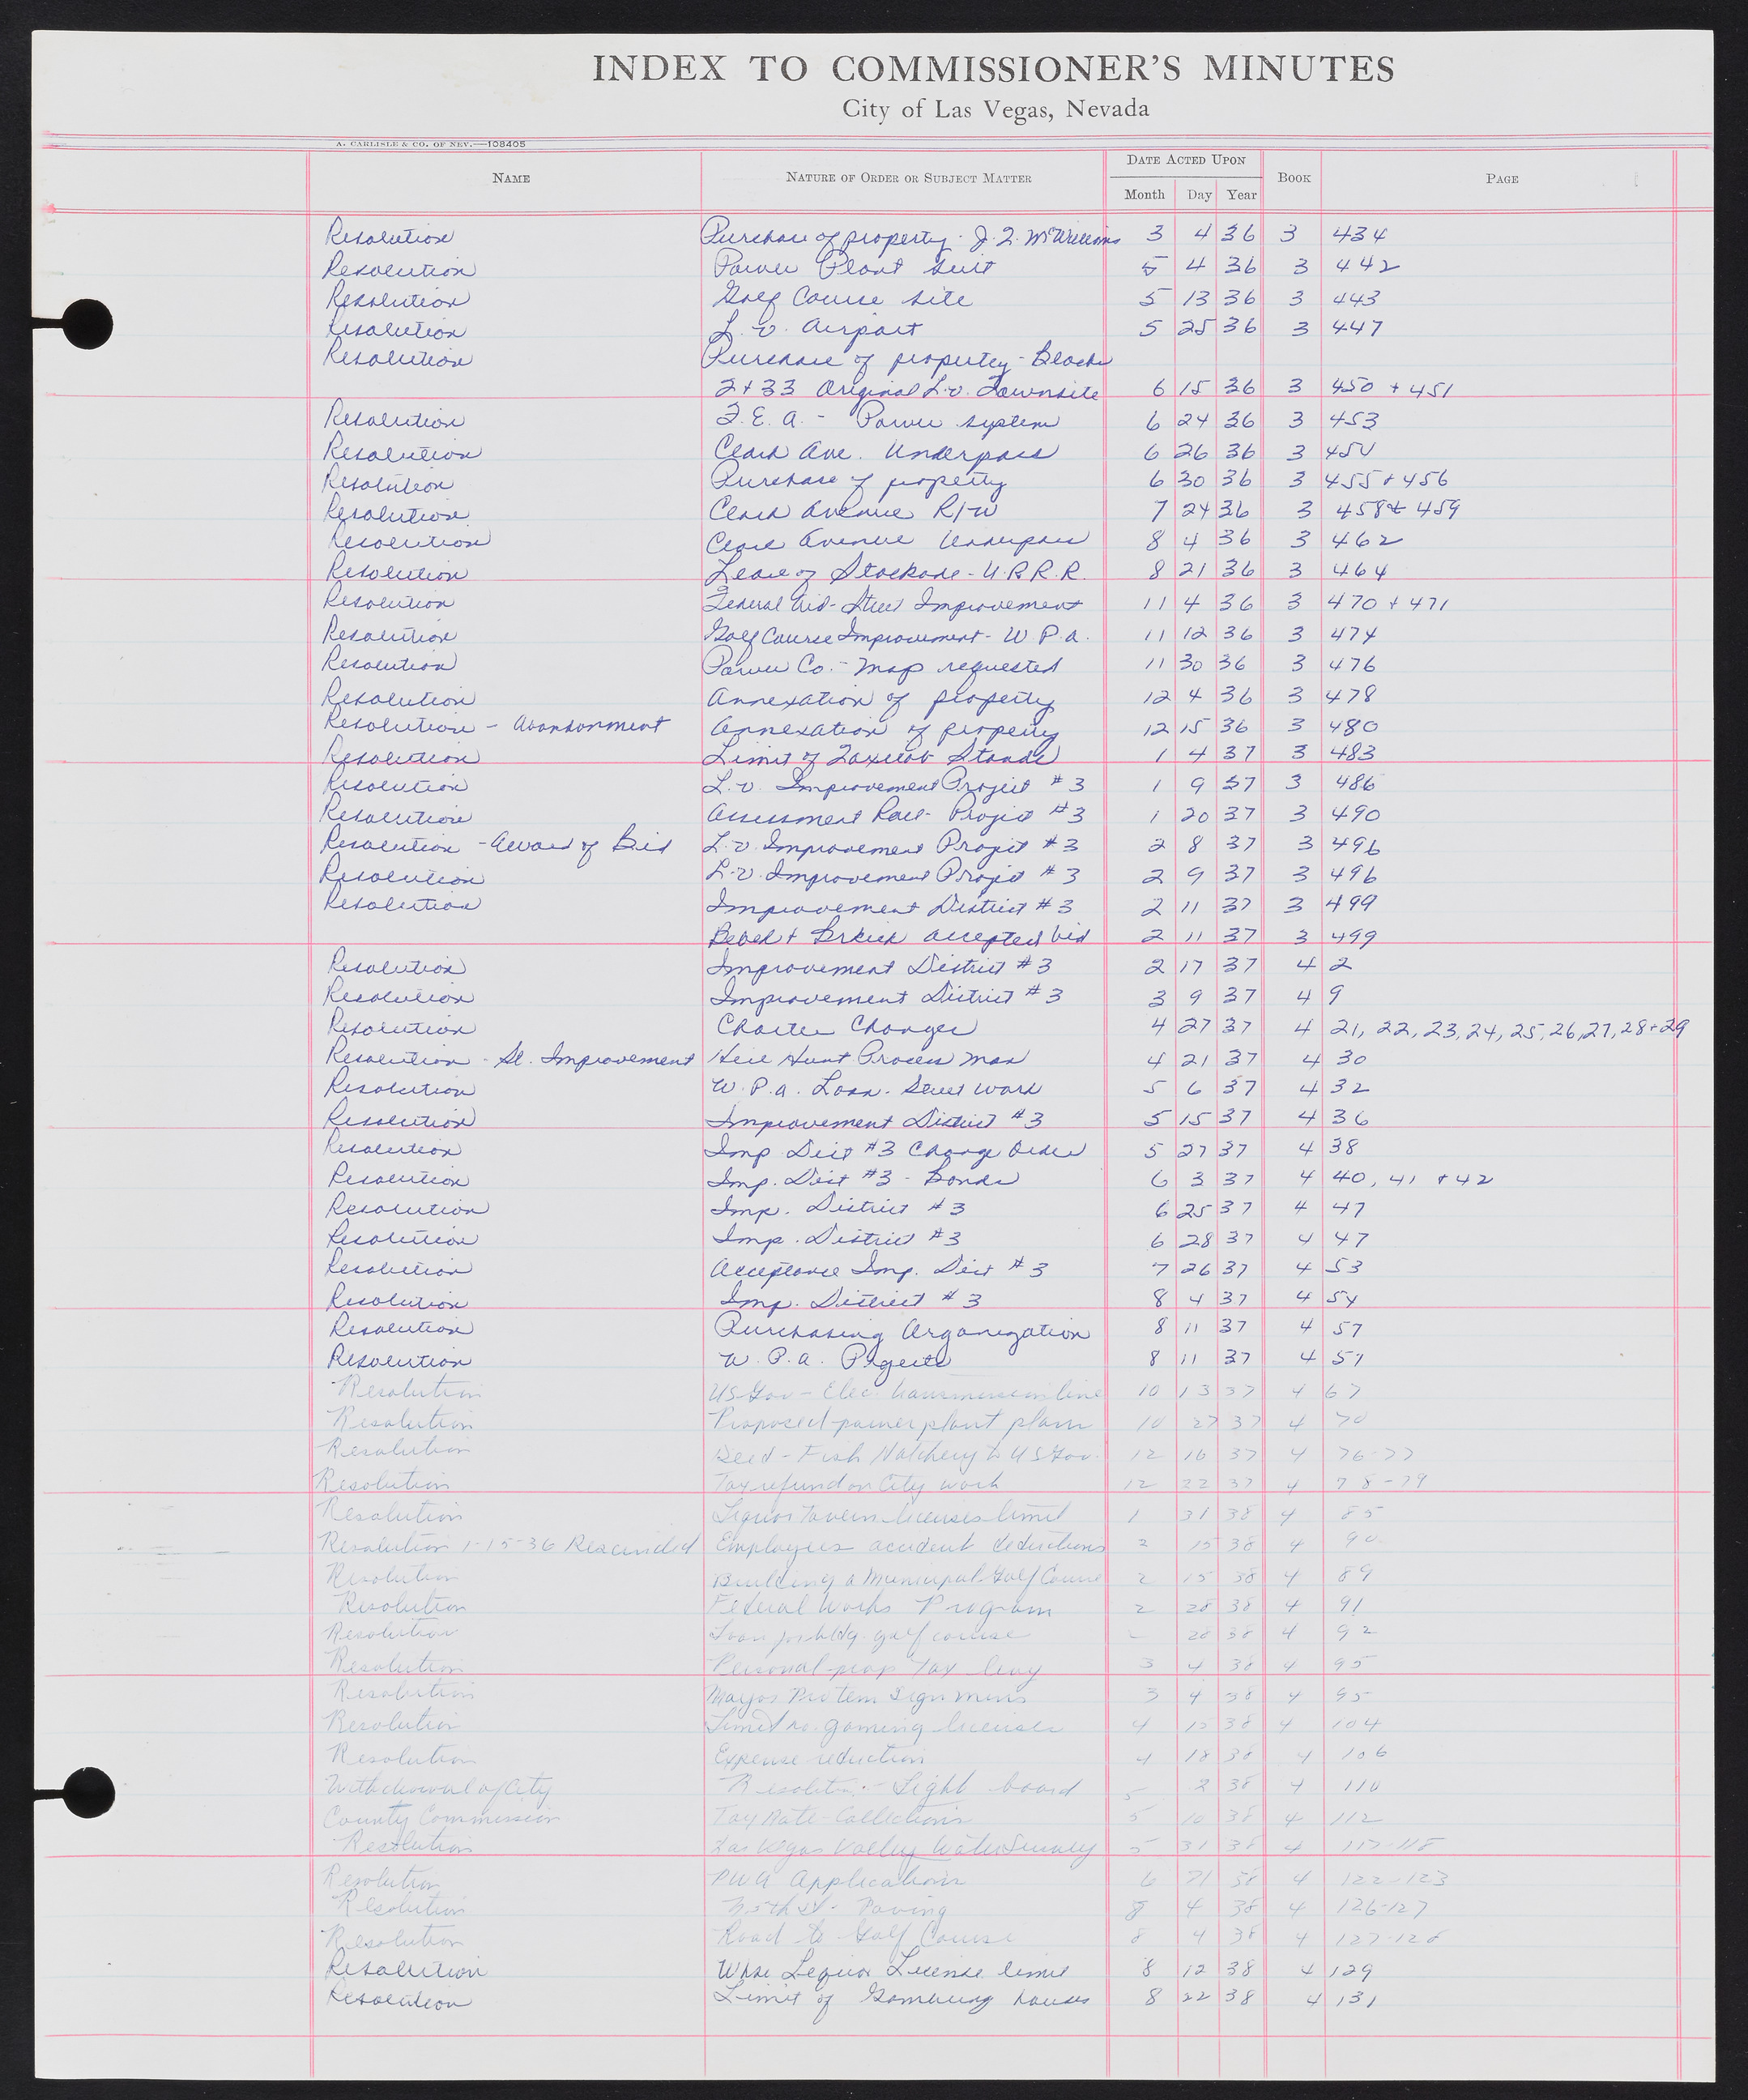 INDEX TO COMMISSIONER'S MINUTES
City of Las Vegas, Nevada
A. CARLISLE & CO. OF NEV.—108405
NAME NATURE OF ORDER OR SUBJECT MATTER DATE ACTED UPON BOOK PAGE
Month Day Year
Resolution Purchase of property - J. T. McWilliams 3 4 36 3 434
Resolution Power Plant suit 5 4 36 3 442
Resolution Golf Course site 5 13 36 3 443
Resolution L. V. Airport 5 25 36 3 447
Resolution Purchase of property - Blocks
2 + 33 Original L.V. Townsite 6 15 36 3 450 + 451
Resolution F. E. A. - Power system 6 24 36 3 453
Resolution Clark Ave. Underpass 6 26 36 3 454
Resolution Purchase of property 6 30 36 3 455 + 456
Resolution Clark Avenue R/W 7 24 36 3 458 + 459
Resolution Clark Avenue Underpass 8 4 36 3 462
Resolution Lease of Stockade - U.P.R.R. 8 21 36 3 464
Resolution Federal Aid - Street Improvement 11 4 36 3 470 + 471
Resolution Golf Course Improvement - W.P.A. 11 12 36 3 474
Resolution Power Co. - Map requested 11 30 36 3 476
Resolution Annexation of property 12 4 36 3 478
Resolution - Abandonment Annexation of property 12 15 36 3 480
Resolution Limit of Taxicab Stands 1 4 37 3 483
Resolution L.V. Improvement Project #3 1 9 37 3 486
Resolution Assessment Roll - Project #3 1 20 37 3 490
Resolution - Award of Bid L.V. Improvement Project #3 2 8 37 3 496
Resolution L.V. Improvement Project #3 2 9 37 3 496
Resolution Improvement District #3 2 11 37 3 499
accepted bid 2 11 37 3 499
Resolution Improvement District #3 2 17 37 4 2
Resolution Improvement District #3 3 9 37 4 9
Resolution Charter Changes 4 27 37 4 21, 22, 23, 24, 25, 26, 27, 28 + 29
Resolution - St. Improvement Hunt Process 4 21 37 4 30
Resolution W.P.A. Loan - Street work 5 6 37 4 32
Resolution Improvement District #3 5 15 37 4 36
Resolution Imp. Dist #3 Change Order 5 27 37 4 38
Resolution Imp. Dist #3 - Bonds 6 3 37 4 40, 41 + 42
Resolution Imp. District #3 6 25 37 4 47
Resolution Imp. District #3 6 28 37 4 47
Resolution Acceptance Imp. Dist #3 7 26 37 4 53
Resolution Imp. District #3 8 4 37 4 54
Resolution Purchasing Organization 8 11 37 4 57
Resolution W.P.A. Projects 8 11 37 4 57
Resolution US Gov - Elec. transmission line 10 13 37 4 67
Resolution Proposed power plant plans 10 27 37 4 70
Resolution Deed - Fish Hatchery to US Gov. 12 16 37 4 76-77
Resolution Tax refund on City work 12 22 37 4 78-79
Resolution Liquor Tavern licenses limit 1 31 38 4 85
Resolution 1-15-36 Rescinded Employees accident deductions 2 15 38 4 90
Resolution Building a Municipal Golf Course 2 15 38 4 89
Resolution Federal Works Program 2 28 38 4 91
Resolution Loan for bldg. golf course 28 38 4 92
Resolution Personal prop Tax levy 3 4 38 4 95
Resolution Mayor Pro tem sign mins 3 4 38 4 95
Resolution Limit no. gaming licenses 4 15 38 4 104
Resolution Expense reduction 4 18 38 4 106
Withdrawal of City Resolution - Light board 5 2 38 4 110
County Commission Tax Rate Collections 5 10 38 4 112
Resolution Las Vegas Valley Water Survey 5 31 38 4 117-118
Resolution PWA Application 6 21 38 4 122-123
Resolution N 5th St - Paving 8 4 38 4 126-127
Resolution Road to Golf Course 8 4 38 4 127-128
Resolution Liquor License limit 8 12 38 4 129
Resolution Limit of Gambling houses 8 22 38 4 131